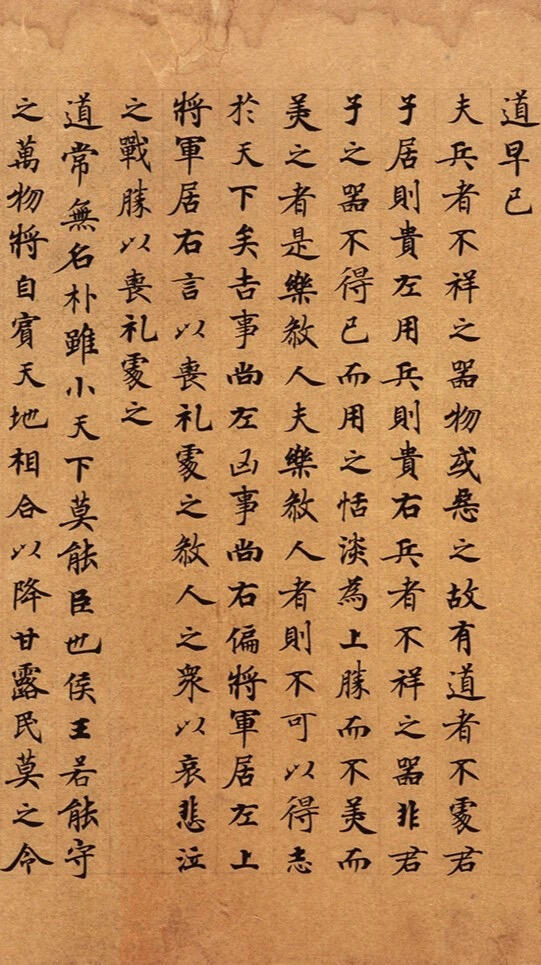 道早已
夫兵者不祥之器物或惡之故有道者不處君
子居則貴左用兵則貴右兵者不祥之器非君
子之器不得已而用之恬淡為上勝而不美而
美之者是樂煞人夫樂煞人者則不可以得志
於天下矣吉事尚左凶事尚右偏將軍居左上
將軍居右言以喪礼處之煞人之衆以哀悲泣
之戰勝以喪礼處之
道常無名朴雖小天下莫能臣也侯王若能守
之萬物將自賓天地相合以降甘露民莫之令